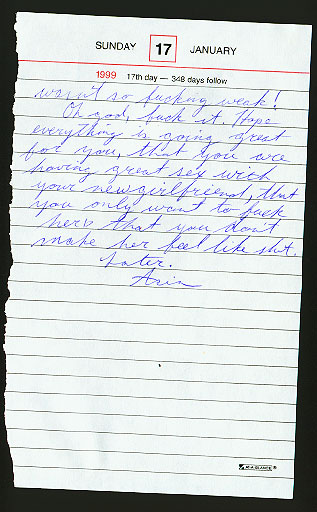 SUNDAY 17 JANUARY
1999 17th day — 348 days follow
wasn't so fucking weak!
Oh god, fuck it. Hope
everything is going great
for you, that you are
having great sex with
your new girlfriend, that
you only want to fuck
her & that you don't
make her feel like shit.
Later.
Asia
AT-A-GLANCE ®